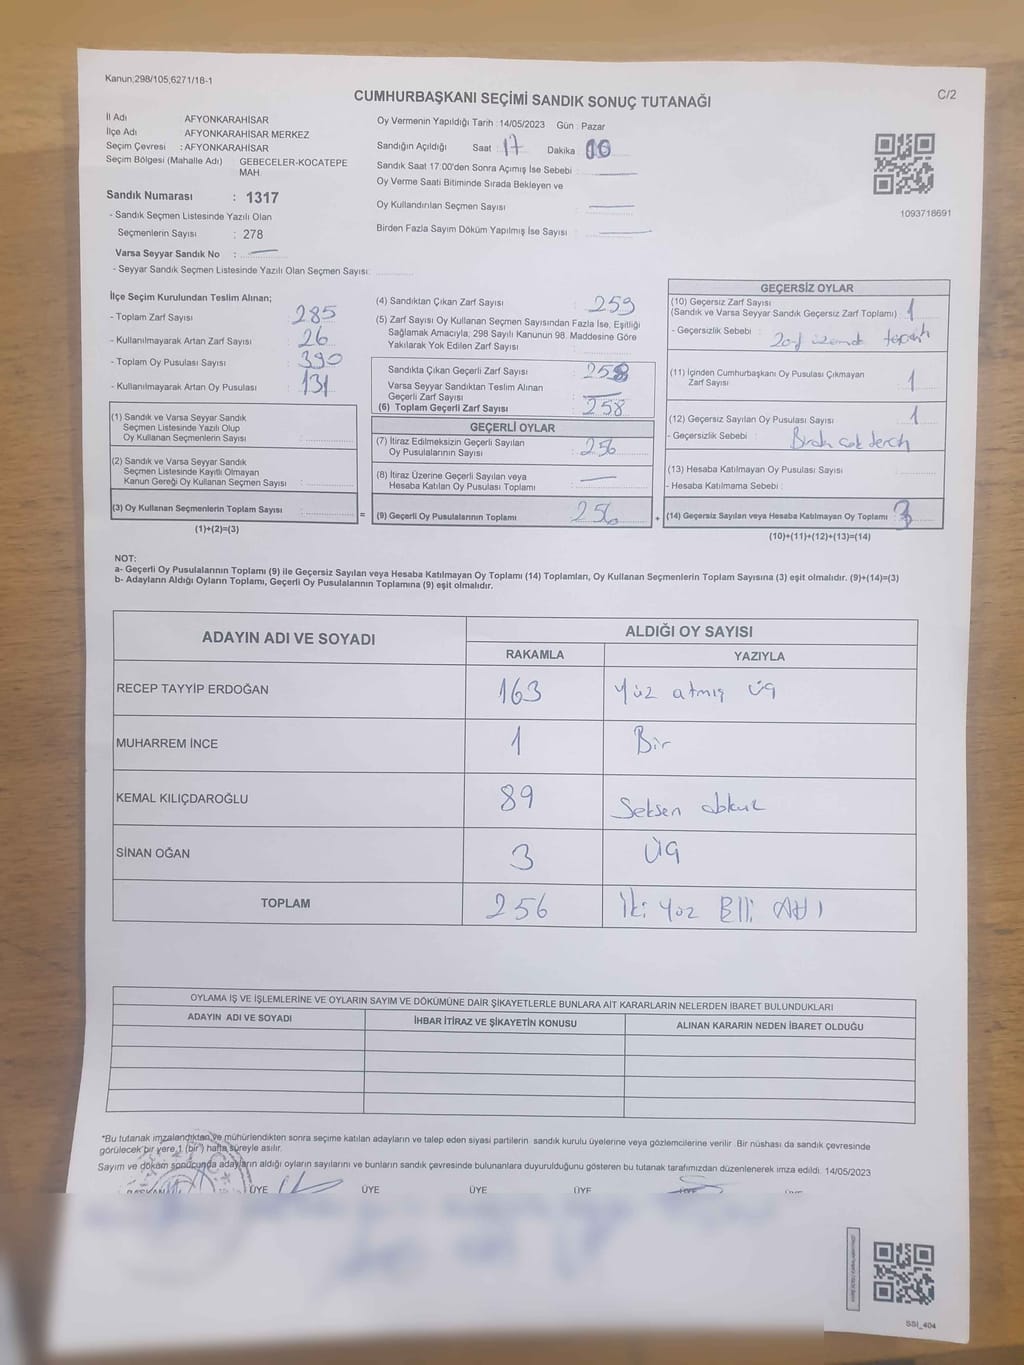 Kanun;298/105,6271/18-1
C/2
CUMHURBAŞKANI SEÇİMİ SANDIK SONUÇ TUTANAĞI
İl Adı AFYONKARAHİSAR
İlçe Adı AFYONKARAHİSAR MERKEZ
Seçim Çevresi : AFYONKARAHİSAR
Seçim Bölgesi (Mahalle Adı) GEBECELER-KOCATEPE
MAH.
Sandık Numarası : 1317
- Sandık Seçmen Listesinde Yazılı Olan
Seçmenlerin Sayısı : 278
Varsa Seyyar Sandık No :
- Seyyar Sandık Seçmen Listesinde Yazılı Olan Seçmen Sayısı:
Oy Vermenin Yapıldığı Tarih : 14/05/2023 Gün : Pazar
Sandığın Açıldığı Saat : 17 Dakika
Sandık Saat 17:00'den Sonra Açımış İse Sebebi :
Oy Verme Saati Bitiminde Sırada Bekleyen ve
Oy Kullandırılan Seçmen Sayısı
Birden Fazla Sayım Döküm Yapılmış İse Sayısı :
1093718691
İlçe Seçim Kurulundan Teslim Alınan;
- Toplam Zarf Sayısı : 285
- Kullanılmayarak Artan Zarf Sayısı : 26
- Toplam Oy Pusulası Sayısı : 390
- Kullanılmayarak Artan Oy Pusulası : 131
(1) Sandık ve Varsa Seyyar Sandık
Seçmen Listesinde Yazılı Olup
Oy Kullanan Seçmenlerin Sayısı :
(2) Sandık ve Varsa Seyyar Sandık
Seçmen Listesinde Kayıtlı Olmayan
Kanun Gereği Oy Kullanan Seçmen Sayısı :
(3) Oy Kullanan Seçmenlerin Toplam Sayısı : =
(1)+(2)=(3)
(4) Sandıktan Çıkan Zarf Sayısı : 259
(5) Zarf Sayısı Oy Kullanan Seçmen Sayısından Fazla İse, Eşitliği
Sağlamak Amacıyla, 298 Sayılı Kanunun 98. Maddesine Göre
Yakılarak Yok Edilen Zarf Sayısı
Sandıkta Çıkan Geçerli Zarf Sayısı : 258
Varsa Seyyar Sandıktan Teslim Alınan
Geçerli Zarf Sayısı
(6) Toplam Geçerli Zarf Sayısı : 258
GEÇERLİ OYLAR
(7) İtiraz Edilmeksizin Geçerli Sayılan
Oy Pusulalarının Sayısı : 256
(8) İtiraz Üzerine Geçerli Sayılan veya
Hesaba Katılan Oy Pusulası Toplamı :
(9) Geçerli Oy Pusulalarının Toplamı 256 +
GEÇERSİZ OYLAR
(10) Geçersiz Zarf Sayısı
(Sandık ve Varsa Seyyar Sandık Geçersiz Zarf Toplamı) : 1
- Geçersizlik Sebebi : Zarf üzerinde
(11) İçinden Cumhurbaşkanı Oy Pusulası Çıkmayan
Zarf Sayısı : 1
(12) Geçersiz Sayılan Oy Pusulası Sayısı : 1
- Geçersizlik Sebebi :
(13) Hesaba Katılmayan Oy Pusulası Sayısı
- Hesaba Katılmama Sebebi :
(14) Geçersiz Sayılan veya Hesaba Katılmayan Oy Toplamı : 3
(10)+(11)+(12)+(13)=(14)
NOT:
a- Geçerli Oy Pusulalarının Toplamı (9) ile Geçersiz Sayılan veya Hesaba Katılmayan Oy Toplamı (14) Toplamları, Oy Kullanan Seçmenlerin Toplam Sayısına (3) eşit olmalıdır. (9)+(14)=(3)
b- Adayların Aldığı Oyların Toplamı, Geçerli Oy Pusulalarının Toplamına (9) eşit olmalıdır.
ADAYIN ADI VE SOYADI ALDIĞI OY SAYISI
RAKAMLA YAZIYLA
RECEP TAYYİP ERDOĞAN 163 Yüz atmış üç
MUHARREM İNCE 1 Bir
KEMAL KILIÇDAROĞLU 89 Seksen
SİNAN OĞAN 3 Üç
TOPLAM 256 İki Yüz Elli Altı
OYLAMA İŞ VE İŞLEMLERİNE VE OYLARIN SAYIM VE DÖKÜMÜNE DAİR ŞİKAYETLERLE BUNLARA AİT KARARLARIN NELERDEN İBARET BULUNDUKLARI
ADAYIN ADI VE SOYADI İHBAR İTİRAZ VE ŞİKAYETİN KONUSU ALINAN KARARIN NEDEN İBARET OLDUĞU
*Bu tutanak imzalandıktan ve mühürlendikten sonra seçime katılan adayların ve talep eden siyasi partilerin sandık kurulu üyelerine veya gözlemcilerine verilir. Bir nüshası da sandık çevresinde
görülecek bir yere 1 (bir) hafta süreyle asılır.
Sayım ve döküm sonucunda adayların aldığı oyların sayılarını ve bunların sandık çevresinde bulunanlara duyurulduğunu gösteren bu tutanak tarafımızdan düzenlenerek imza edildi. 14/05/2023
BAŞKAN ÜYE ÜYE ÜYE ÜYE ÜYE
SSI_404